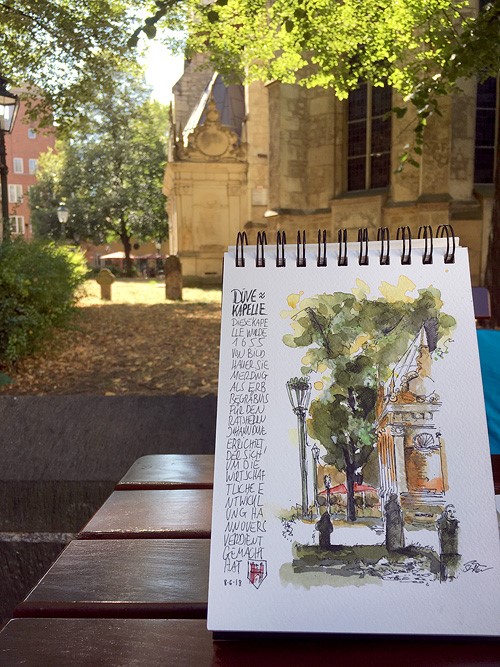 DÜVE≈
KAPELLE
DIESE KAPE
LLE WURDE
1655
VON BILD
HAUER SIE
MERDING
ALS ERB
BEGRÄBNIS
FÜR DEN
RATSHERRN
JOHANN DUVE
ERRICHTET,
DER SICH
UM DIE
WIRTSCHAF
TLICHE E
NTWICKL
UNG HA
NNOVERS
VERDIENT
GEMACHT
HAT
8·6·18